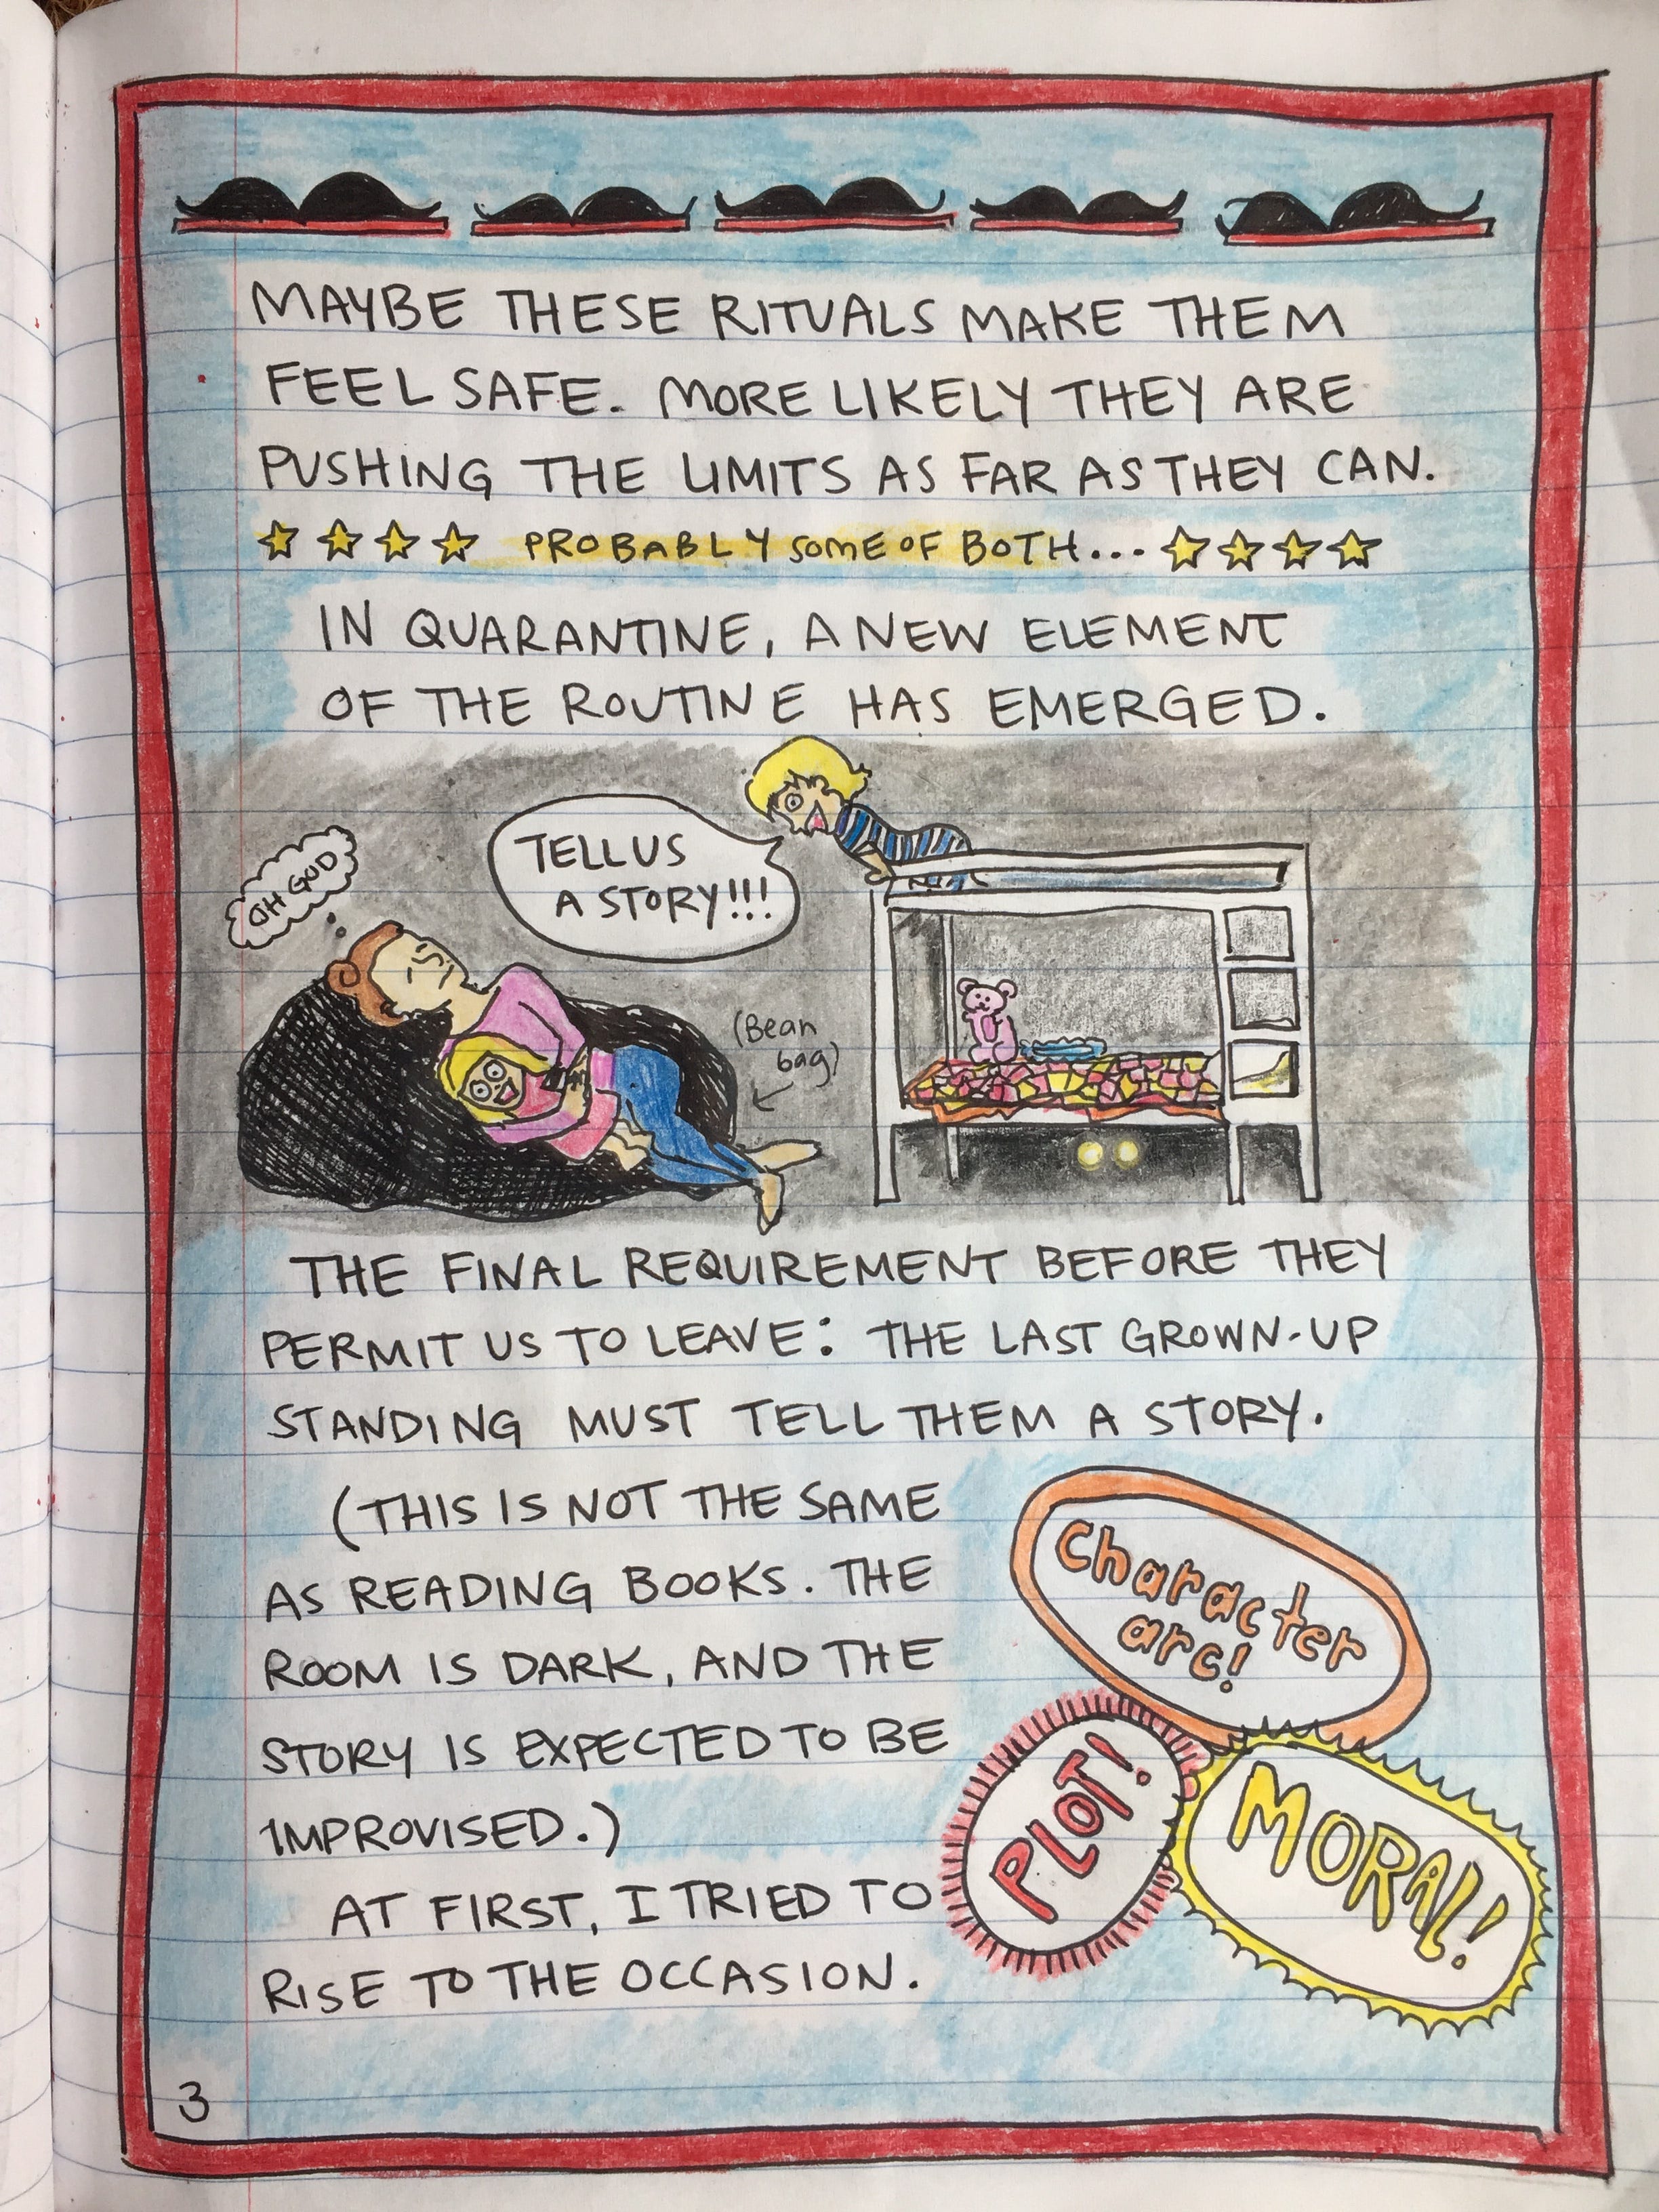 MAYBE THESE RITUALS MAKE THEM
FEEL SAFE. MORE LIKELY THEY ARE
PUSHING THE LIMITS AS FAR AS THEY CAN.
PROBABLY SOME OF BOTH...
IN QUARANTINE, A NEW ELEMENT
OF THE ROUTINE HAS EMERGED.
TELL US
A STORY!!!
OH GOD
(Bean
bag)
THE FINAL REQUIREMENT BEFORE THEY
PERMIT US TO LEAVE: THE LAST GROWN-UP
STANDING MUST TELL THEM A STORY.
(THIS IS NOT THE SAME
AS READING BOOKS. THE
ROOM IS DARK, AND THE
STORY IS EXPECTED TO BE
IMPROVISED.)
Character
arc!
PLOT!
MORAL!
AT FIRST, I TRIED TO
RISE TO THE OCCASION.
3